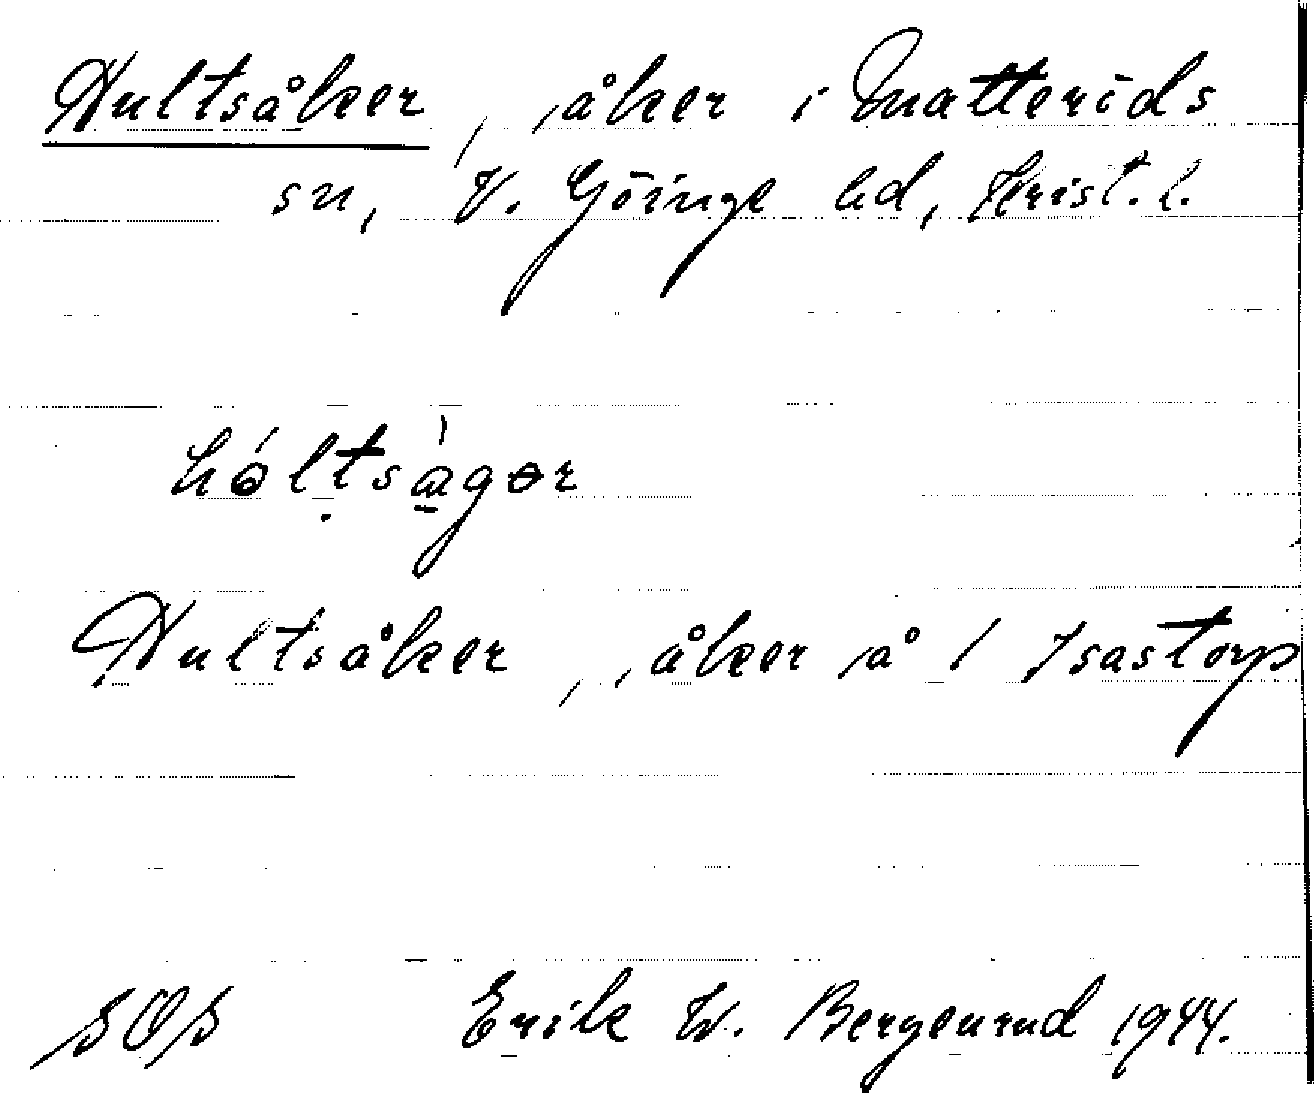 Hultsåker, åker i Matteröds
sn, V. Göinge hd, Krist. l.
hóltsàgər
Hultsåker, åker å 1 Isastorp
SOS Erik W. Bergenrud 1944.